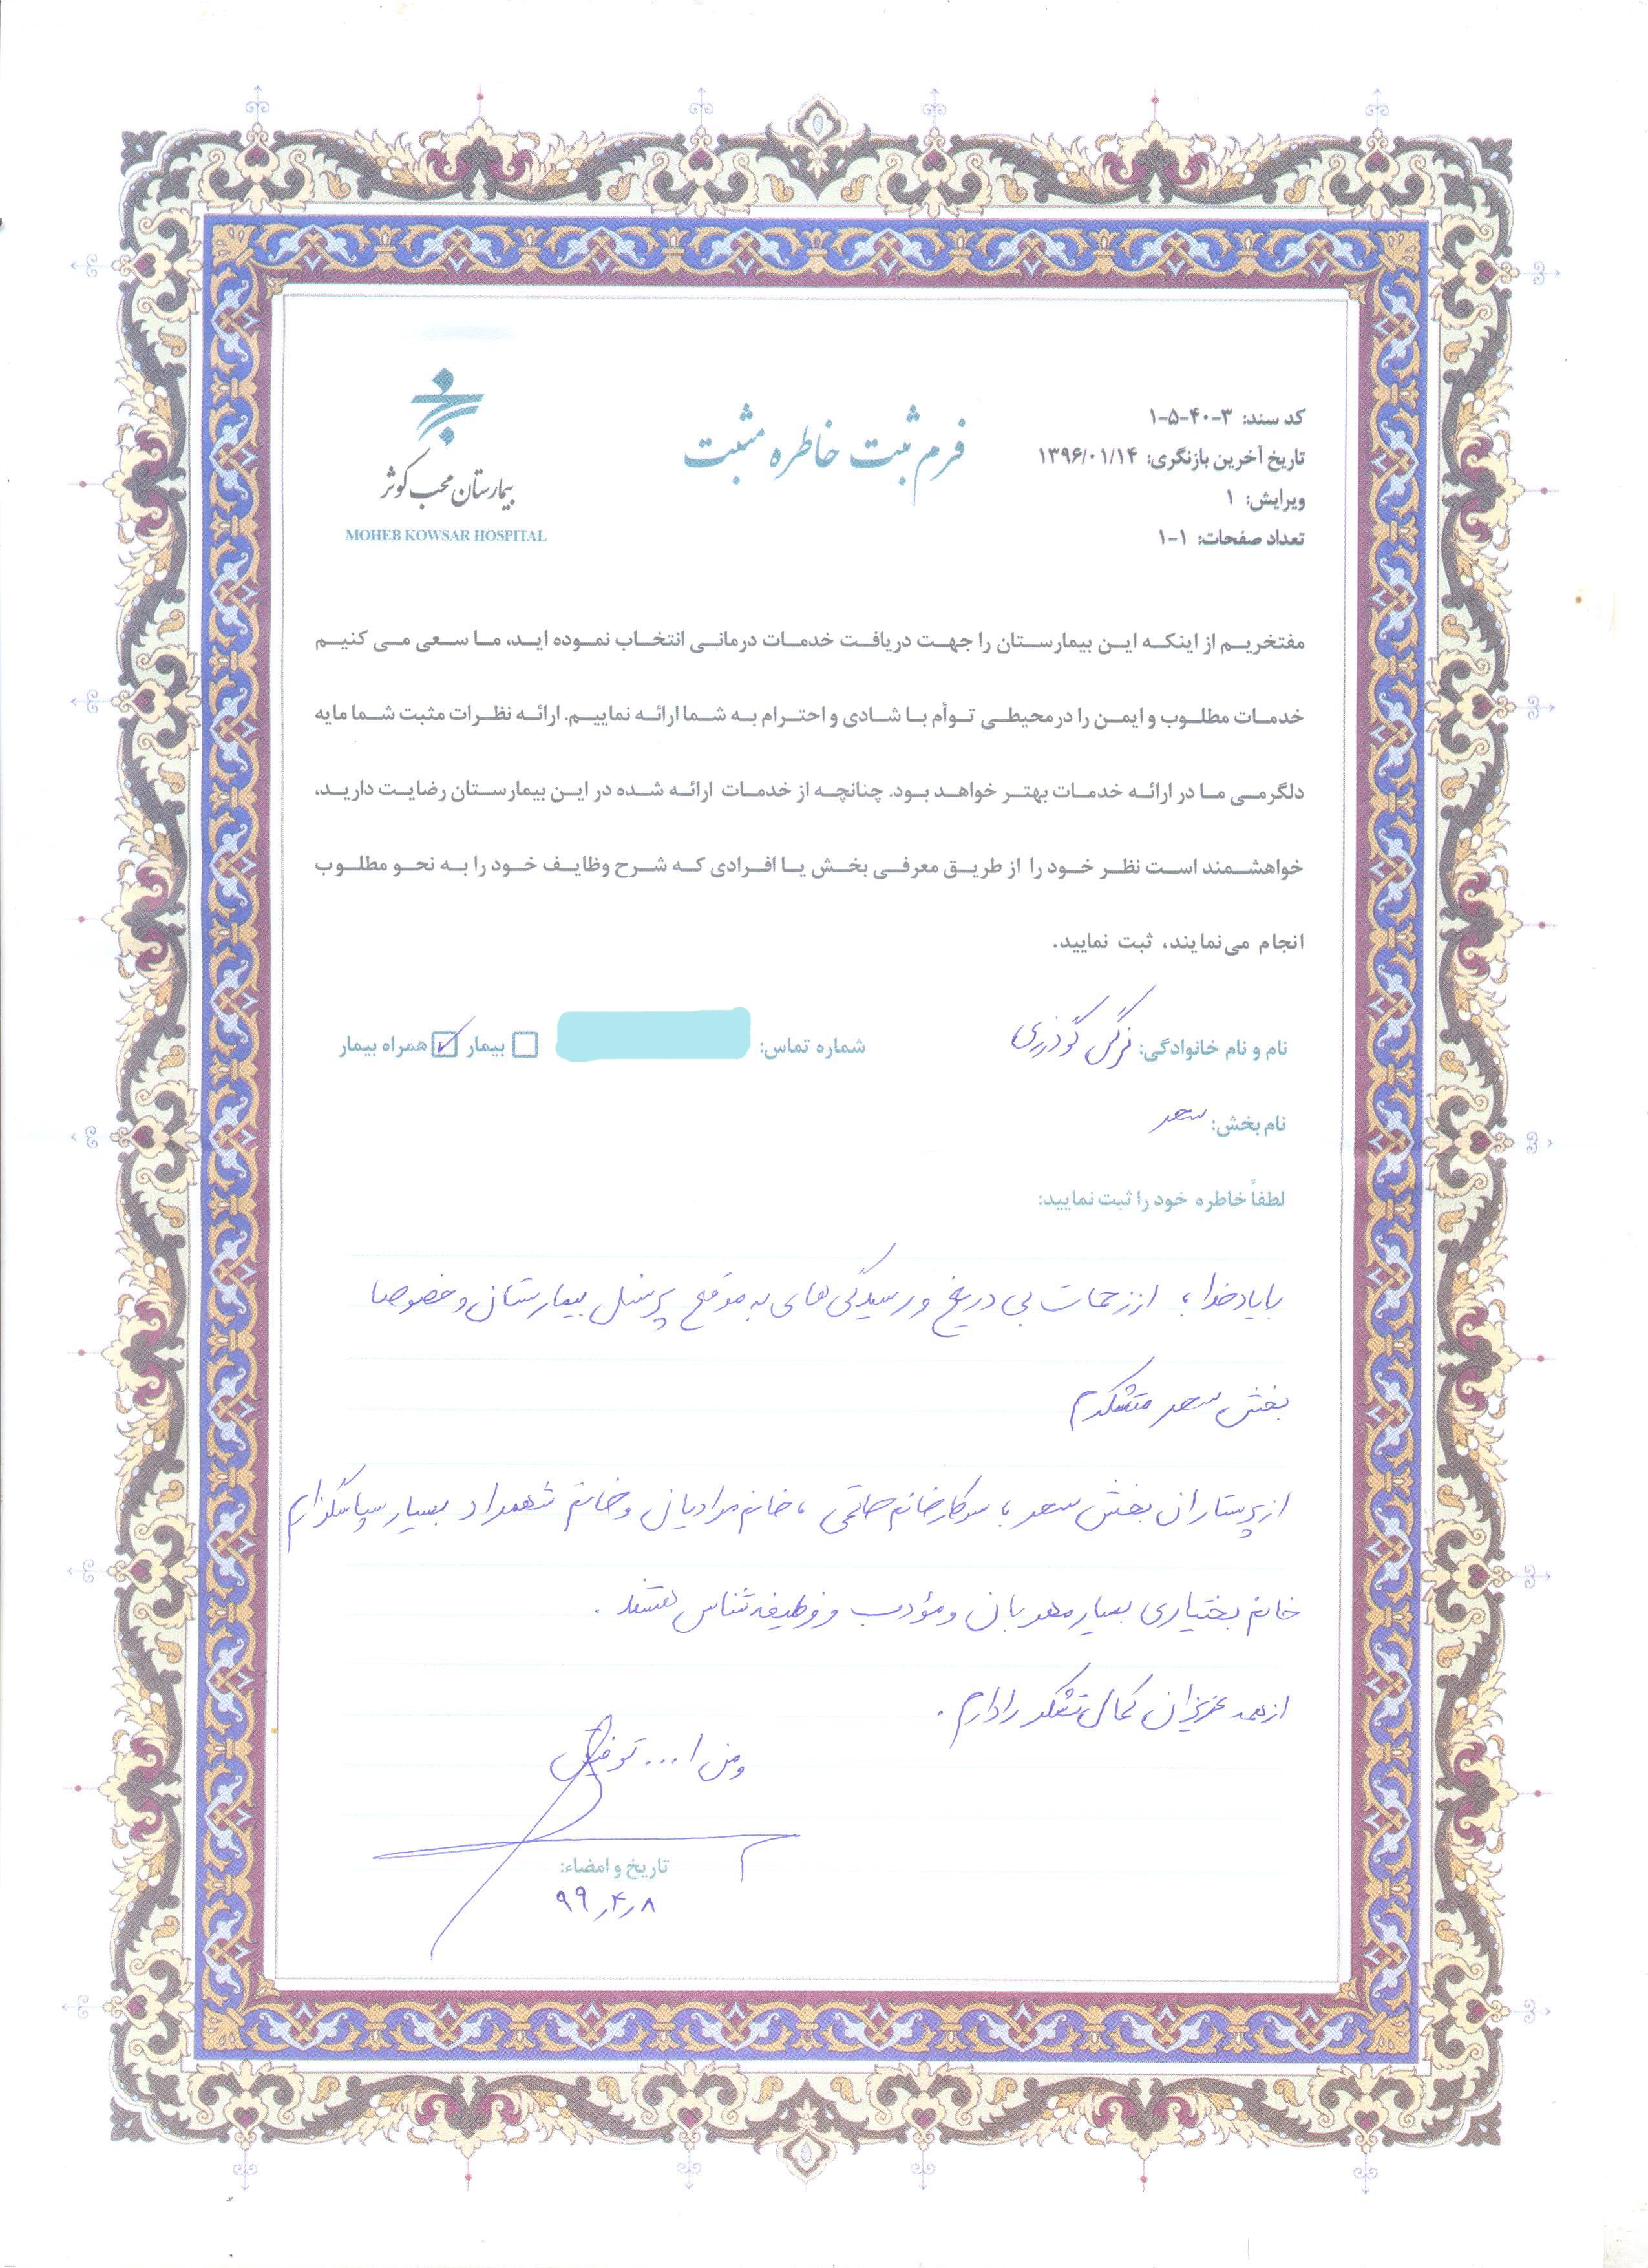 کد سند: ۳-۴۰-۵-۱
تاریخ آخرین بازنگری: ۱۳۹۶/۰۱/۱۴
ویرایش: ۱
تعداد صفحات: ۱-۱
فرم ثبت خاطره مثبت
بیمارستان محب کوثر
MOHEB KOWSAR HOSPITAL
مفتخریم از اینکه این بیمارستان را جهت دریافت خدمات درمانی انتخاب نموده اید، ما سعی می کنیم
خدمات مطلوب و ایمن را درمحیطی توأم با شادی و احترام به شما ارائه نماییم. ارائه نظرات مثبت شما مایه
دلگرمی ما در ارائه خدمات بهتر خواهد بود. چنانچه از خدمات ارائه شده در این بیمارستان رضایت دارید،
خواهشمند است نظر خود را از طریق معرفی بخش یا افرادی که شرح وظایف خود را به نحو مطلوب
انجام می‌نمایند، ثبت نمایید.
نام و نام خانوادگی: نرگس گودرزی شماره تماس: بیمار همراه بیمار
نام بخش: سحر
لطفاً خاطره خود را ثبت نمایید:
با یاد خدا، از زحمات بی دریغ و رسیدگی های به موقع پرسنل بیمارستان و خصوصا
بخش سحر متشکرم
از پرستاران بخش سحر، سرکار خانم حاتمی، خانم مرادیان و خانم شهمراد بسیار سپاسگزارم
خانم بختیاری بسیار مهربان و مؤدب و وظیفه شناس هستند.
از همه عزیزان کمال تشکر را دارم.
و من ا... توفیق
تاریخ و امضاء:
۹۹٫۴٫۸